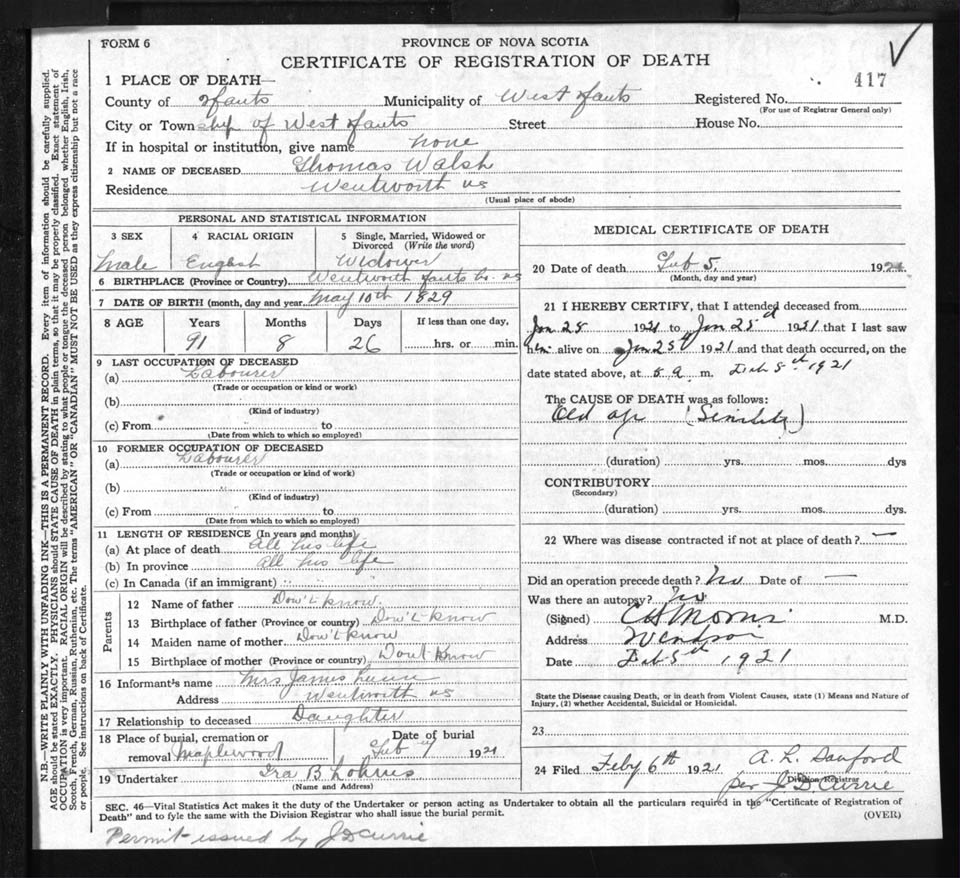 FORM 6
PROVINCE OF NOVA SCOTIA
CERTIFICATE OF REGISTRATION OF DEATH
417
1 PLACE OF DEATH—
County of Hants Municipality of West Hants Registered No.
(For use of Registrar General only)
City or Town ship of West Hants Street House No.
If in hospital or institution, give name none
2 NAME OF DECEASED Thomas Walsh
Residence Wentworth NS
(Usual place of abode)
PERSONAL AND STATISTICAL INFORMATION
3 SEX 4 RACIAL ORIGIN 5 Single, Married, Widowed or Divorced (Write the word)
Male English Widower
6 BIRTHPLACE (Province or Country) Wentworth Hants Co. NS
7 DATE OF BIRTH (month, day and year) May 10th 1829
8 AGE Years Months Days If less than one day,
91 8 26 hrs. or min.
9 LAST OCCUPATION OF DECEASED
(a) Labourer
(Trade or occupation or kind or work)
(b)
(Kind of industry)
(c) From to
(Date from which to which so employed)
10 FORMER OCCUPATION OF DECEASED
(a) Labourer
(Trade or occupation or kind of work)
(b)
(Kind of industry)
(c) From to
(Date from which to which so employed)
11 LENGTH OF RESIDENCE (In years and months)
(a) At place of death All his life
(b) In province All his life
(c) In Canada (if an immigrant)
Parents
12 Name of father Dow't know.
13 Birthplace of father (Province or country) Dow't know
14 Maiden name of mother Dow't know
15 Birthplace of mother (Province or country) Dont know
16 Informant's name Mrs James
Address Wentworth NS
17 Relationship to deceased Daughter
18 Place of burial, cremation or removal Maplewood
Date of burial Feb 1921
19 Undertaker Ira B Lohnes
(Name and Address)
MEDICAL CERTIFICATE OF DEATH
20 Date of death Feb 5, 1921
(Month, day and year)
21 I HEREBY CERTIFY, that I attended deceased from
Jan 25 1921 to Jan 25th 1921 that I last saw
him alive on Jan 25th 1921 and that death occurred, on the
date stated above, at 5 a m. Feb 5th 1921
The CAUSE OF DEATH was as follows:
Old age (Senility)
(duration) yrs. mos. dys
CONTRIBUTORY
(Secondary)
(duration) yrs. mos. dys.
22 Where was disease contracted if not at place of death? —
Did an operation precede death? No Date of —
Was there an autopsy? No
(Signed) Morris M.D.
Address Windsor
Date Feb 5th 1921
State the Disease causing Death, or in death from Violent Causes, state (1) Means and Nature of
Injury, (2) whether Accidental, Suicidal or Homicidal.
23
24 Filed Feby 6th 1921 A. L. Sanford
Division Registrar
per J D Currie
SEC. 46—Vital Statistics Act makes it the duty of the Undertaker or person acting as Undertaker to obtain all the particulars required in the "Certificate of Registration of
Death" and to fyle the same with the Division Registrar who shall issue the burial permit.
(OVER)
Permit issued by J D Currie
N.B.—WRITE PLAINLY WITH UNFADING INK—THIS IS A PERMANENT RECORD. Every item of information should be carefully supplied.
AGE should be stated EXACTLY. PHYSICIANS should STATE CAUSE OF DEATH in plain terms, so that it may be properly classified. Exact statement of
OCCUPATION is very important. RACIAL ORIGIN will be described by stating to what people or tongue the deceased person belonged whether English, Irish,
Scotch, French, German, Russian, Ruthenian, etc. The terms "AMERICAN" OR "CANADIAN" MUST NOT BE USED as they express citizenship but not a race
or people. See instructions on back of Certificate.